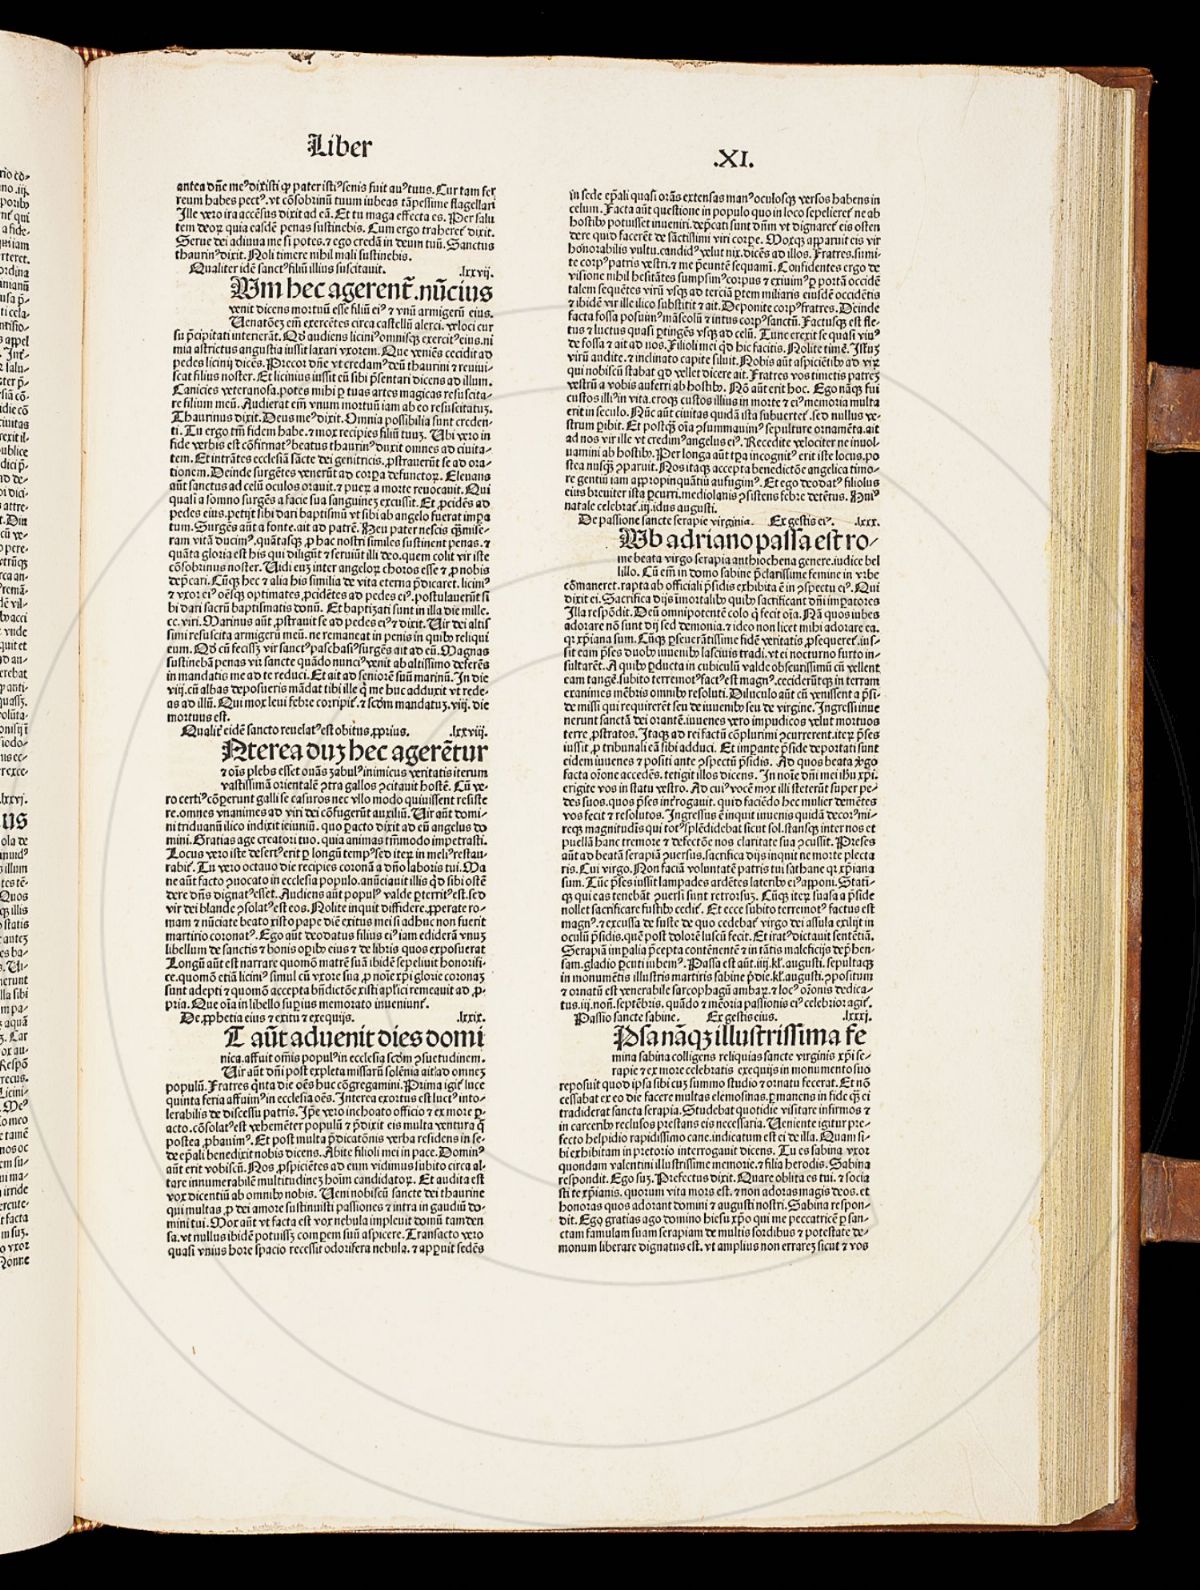 Liber
.XI.
antea dñe meꝰ dixisti ꝙ pater istiꝰ senis fuit auꝰ tuus. Cur tam fer
reum habes pectꝰ. vt cõsobrinũ tuum iubeas tã pessime flagellari
Ille vero ira accẽsus dixit ad eã. Et tu maga effecta es. Per salu
tem deoꝝ quia easdẽ penas sustinebis. Cum ergo traheret dixit.
Serue dei adiuua me si potes. ⁊ ego credã in deum tuũ. Sanctus
thaurinꝰ dixit. Noli timere nihil mali sustinebis.
Qualiter idẽ sanctꝰ filiũ illius suscitauit. .lxxvij.
Um hec agerent̃. nũcius
venit dicens mortuũ esse filiũ eiꝰ ⁊ vnũ armigerũ eius.
Uenatões em̃ exercẽtes circa castellũ alerci. veloci cur
su p̃cipitati interierãt. Qđ audiens liciniꝰ omnisqꝫ exercitꝰ eius. ni
mia astrictus angustia iussit laxari vxorem. Que veniẽs cecidit ad
pedes licinij dicẽs. Precor dñe vt credamꝰ deũ thaurini ⁊ reuiui-
scat filius noster. Et licinius iussit eũ sibi p̃sentari dicens ad illum.
Canicies veteranosa. potes mihi ꝑ tuas artes magicas resuscita-
re filium meũ. Audierat em̃ vnum mortuũ iam ab eo resuscitatuꝫ.
Thaurinus dixit. Deus meꝰ dixit. Omnia possibilia sunt creden-
ti. Tu ergo tm̃ fidem habe. ⁊ mox recipies filiũ tuuꝫ. Ubi vero in
fide verbis est cõfirmatꝰ beatus thaurinꝰ duxit omnes ad ciuita-
tem. Et intrãtes ecclesiã sãcte dei genitricis, ꝓstrauerũt se ad ora-
tionem. Deinde surgẽtes venerũt ad corpa defunctoꝝ. Eleuans
aũt sanctus ad celũ oculos orauit. ⁊ pueꝝ a morte reuocauit. Qui
quasi a somno surgẽs a facie sua sanguineꝫ excussit. Et ꝓcidẽs ad
pedes eius. petijt sibi dari baptismũ vt sibi ab angelo fuerat impa
tum. Surgẽs aũt a fonte. ait ad patrẽ. Heu pater nescis qꝫ mise-
ram vitã ducimꝰ. quãtasqꝫ ꝓ hac nostri similes sustinent penas. ⁊
quãta gloria est his qui diligũt ⁊ seruiũt illi deo. quem colit vir iste
cõsobrinus noster. Uidi euꝫ inter angeloꝝ choros esse ⁊ ꝓ nobis
dep̃cari. Cũqꝫ hec ⁊ alia his similia de vita eterna p̃dicaret. liciniꝰ
⁊ vxor eiꝰ oẽsqꝫ optimates, ꝓcidẽtes ad pedes eiꝰ. postulauerũt si
bi dari sacrũ baptismatis donũ. Et baptiȝati sunt in illa die mille.
cc. viri. Marinus aũt, ꝓstrauit se ad pedes eiꝰ ⁊ dixit. Uir dei altis
simi resuscita armigerũ meũ. ne remaneat in penis in quibꝰ reliqui
eum. Qđ cũ fecissꝫ vir sanctꝰ pascasiꝰ surgẽs ait ad eũ. Magnas
sustinebã penas vir sancte quãdo nunciꝰ venit ab altissimo deferẽs
in mandatis me ad te reduci. Et ait ad seniorẽ suũ marinũ. In die
viij. cũ albas deposueris mãdat tibi ille q̃ me huc adduxit vt rede-
as ad illũ. Qui mox leui febre corripit̃. ⁊ scđm mandatuꝫ. viij. die
mortuus est.
Qualit̃ eidẽ sancto reuelatꝰ est obitus, ꝓprius. .lxxviij.
Nterea duꝫ hec agerẽtur
⁊ oĩs plebs esset ouãs zabulꝰ inimicus veritatis iterum
vastissimã orientalẽ ꝯtra gallos ꝯcitauit hostẽ. Cũ ve-
ro certiꝰ cõperunt galli se casuros nec vllo modo quiuissent resiste
re. omnes vnanimes ad viri dei cõfugerũt auxiliũ. Uir aũt domi-
ni triduanũ ilico indixit ieiuniũ. quo ꝑacto dixit ad eũ angelus do
mini. Gratias age creatori tuo. quia animas tm̃modo impetrasti.
Locus vero iste desertꝰ erit ꝑ longũ tempꝰ sed iteꝝ in meliꝰ restau-
rabit̃. Tu vero octauo die recipies coronã a dño laboris tui. Ma
ne aũt facto ꝯuocato in ecclesia populo. añũciauit illis qđ sibi ostẽ
dere dñs dignatꝰ esset. Audiens aũt populꝰ valde ꝑterritꝰ est. sed
vir dei blande ꝯsolatꝰ est eos. Nolite inquit diffidere, ꝓperate ro-
mam ⁊ nũciate beato xisto pape diẽ exitus mei si adhuc non fuerit
martirio coronatꝰ. Ego aũt deodatus filius eiꝰ iam ediderã vnuꝫ
libellum de sanctis ⁊ bonis oꝑibꝰ eius ⁊ de libris quos exposuerat
Longũ aũt est narrare quomõ matrẽ suã ibidẽ sepeliuit honorifi-
ce. quomõ etiã liciniꝰ simul cũ vxore sua, ꝓ noĩe xp̃i glorie coronaꝫ
sunt adepti ⁊ quomõ accepta bñdictõe xisti apl̃ici remeauit ad, ꝓ-
pria. Que oĩa in libello suꝑius memorato inueniunt̃.
De, ꝓphetia eius ⁊ exitu ⁊ exequijs. .lxxix.
T aũt aduenit dies domi
nica. affuit om̃is populꝰ in ecclesia scđm ꝯsuetudinem.
Uir aũt dñi post expleta missarũ solẽnia ait ad omneꝫ
populũ. Fratres q̃nta die oẽs huc cõgregamini. Prima igit̃ luce
quinta feria affuimꝰ in ecclesia oẽs. Interea exortus est luctꝰ into-
lerabilis de discessu patris. Ip̃e vero inchoato officio ⁊ ex more ꝑ-
acto. cõsolatꝰ est vehemẽter populũ ⁊ p̃dixit eis multa ventura q̃
postea, ꝓbauimꝰ. Et post multa p̃dicatõnis verba residens in se-
de ep̃ali benedixit nobis dicens. Abite filioli mei in pace. Dominꝰ
aũt erit vobiscũ. Nos, ꝓspiciẽtes ad eum vidimus subito circa al-
tare innumerabilẽ multitudineꝫ hoĩm candidatoꝝ. Et audita est
vox dicentiũ ab omnibꝰ nobis. Ueni nobiscũ sancte dei thaurine
qui multas, ꝓ dei amore sustinuisti passiones ⁊ intra in gaudiũ do-
mini tui. Mox aũt vt facta est vox nebula impleuit domũ tam den
sa. vt nullus ibidẽ potuissꝫ comꝑem suũ aspicere. Transacto vero
quasi vnius hore spacio recessit odorifera nebula. ⁊ apꝑuit sedẽs
in sede ep̃ali quasi orãs extensas manꝰ oculosqꝫ versos habens in
celum. Facta aũt questione in populo quo in loco sepeliret̃ ne ab
hostibꝰ potuisset inueniri. dep̃cati sunt dñm vt dignaret̃ eis osten
dere quid facerẽt de sãctissimi viri corꝑe. Moxqꝫ apparuit eis vir
honorabilis vultu. candidꝰ velut nix. dicẽs ad illos. Fratres. sumi
te corpꝰ patris vestri. ⁊ me p̃euntẽ sequamĩ. Confidentes ergo de
visione nihil hesitãtes sumpsimꝰ corpus ⁊ exiuimꝰ ꝑ portã occidẽ
talem sequẽtes virũ vsqꝫ ad terciã ꝑtem miliaris eiusdẽ occidẽtis
⁊ ibidẽ vir ille ilico substitit ⁊ ait. Deponite corpꝰ fratres. Deinde
facta fossa posuimꝰ mãseolũ ⁊ intus corpꝰ sanctũ. Factusqꝫ est fle-
tus ⁊ luctus quasi ꝑtingẽs vsqꝫ ad celũ. Tunc erexit se quasi viuꝰ
de fossa ⁊ ait ad nos. Filioli mei qđ hic facitis. Nolite timẽ. Istuꝫ
virũ audite. ⁊ inclinato capite siluit. Nobis aũt aspiciẽtibꝰ ad viꝝ
qui nobiscũ stabat qđ vellet dicere ait. Fratres vos timetis patreꝫ
vestrũ a vobis auferri ab hostibꝰ. Nõ aũt erit hoc. Ego nãqꝫ fui
custos illiꝰ in vita. eroqꝫ custos illius in morte ⁊ eiꝰ memoria multa
erit in seculo. Nũc aũt ciuitas quidã ista subuertet̃. sed nullus ve-
strum ꝑibit. Et postqꝫ oĩa ꝯsummauimꝰ sepulture ornamẽta. ait
ad nos vir ille vt credimꝰ angelus eiꝰ. Recedite velociter ne inuol
uamini ab hostibꝰ. Per longa aũt tꝑa incognitꝰ erit iste locus. po
stea nusqꝫ ꝯparuit. Nos itaqꝫ accepta benedictõe angelica timo-
re gentiũ iam appropinquãtiũ aufugimꝰ. Et ego deodatꝰ filiolus
eius breuiter ista ꝑcurri. mediolanis ꝯsistens febre detẽtus. Huiꝰ
natale celebrat̃. iij. idus augusti.
De passione sancte serapie virginis. Ex gestis eiꝰ. .lxxx.
Ub adriano passa est ro-
me beata virgo serapia anthiochena genere. iudice bel
lillo. Cũ em̃ in domo sabine p̃clarissime femine in vrbe
cõmaneret. rapta ab officiali p̃sidis exhibita ẽ in ꝯspectu eiꝰ. Qui
dixit ei. Sacrifica dijs im̃ortalibꝰ quibꝰ sacrificant dñi imꝑatores
Illa respõdit. Deũ omnipotentẽ colo q̃ fecit oĩa. Nã quos iubes
adorare nõ sunt dij sed demonia. ⁊ ideo non licet mihi adorare ea.
qꝛ xp̃iana sum. Cũqꝫ ꝑseuerãtissime fidẽ veritatis, ꝓsequeret̃. ius-
sit eam p̃ses duobꝰ iuuenibꝰ lasciuis tradi. vt ei nocturno furto in-
sultarẽt. A quibꝰ ꝑducta in cubiculũ valde obscurissimũ cũ vellent
eam tangẽ. subito terremotꝰ factꝰ est magnꝰ. ceciderũtqꝫ in terram
exanimes mẽbris omnibꝰ resoluti. Diluculo aũt cũ venissent a p̃si-
de missi qui requirerẽt seu de iuuenibꝰ seu de virgine. Ingressi inue
nerunt sanctã dei orantẽ. iuuenes vero impudicos velut mortuos
terre, ꝓstratos. Itaqꝫ ad rei factũ cõplurimi ꝯcurrerent. iteꝝ p̃ses
iussit, ꝓ tribunali eã sibi adduci. Et imꝑante p̃side deportati sunt
eidem iuuenes ⁊ positi ante ꝯspectũ p̃sidis. Ad quos beata ꝟgo
facta orõne accedẽs. tetigit illos dicens. In noĩe dñi mei ihũ xp̃i.
erigite vos in statu vestro. Ad cuiꝰ vocẽ mox illi steterũt super pe-
des suos. quos p̃ses interrogauit. quid faciẽdo hec mulier demẽtes
vos fecit ⁊ resolutos. Ingressus ẽ inquit iuuenis quidã decorꝰ ni-
reqꝫ magnitudĩs qui totꝰ splẽdidebat sicut sol. stansqꝫ inter nos et
puellã hanc tremore ⁊ defectõe nos claritate sua ꝯcussit. Preses
aũt ad beatã serapiã ꝯuersus. sacrifica dijs inquit ne morte plecta
ris. Cui virgo. Non faciã voluntatẽ patris tui sathane qꝛ xp̃iana
sum. Tũc p̃ses iussit lampades ardẽtes lateribꝰ eiꝰ apponi. Stati-
qꝫ qui eas tenebãt ꝯuersi sunt retrorsuꝫ. Cũqꝫ iteꝝ suasa a p̃side
nollet sacrificare fustibꝰ cedit̃. Et ecce subito terremotꝰ factus est
magnꝰ. ⁊ excussa de fuste de quo cedebat̃ virgo dei assula exilijt in
oculũ p̃sidis. quẽ post dolorẽ luscũ fecit. Et iratꝰ dictauit sentẽtiã.
Serapiã imꝑalia p̃cepta contẽnentẽ ⁊ in tãtis maleficijs dep̃hen-
sam. gladio ꝑcuti iubemꝰ. Passa est aũt. iiij. kl̃. augusti. sepultaqꝫ
in monumẽtis illustris martiris sabine p̃die. kl̃. augusti. ꝯpositum
⁊ ornatũ est venerabile sarcophagũ ambaꝝ. ⁊ locꝰ orõnis dedica-
tus. iij. noñ. septẽbris. quãdo ⁊ mẽoria passionis eiꝰ celebrior agit̃.
Passio sancte sabine. Ex gestis eius. .lxxxj.
Psa nãqꝫ illustrissima fe
mina sabina colligens reliquias sancte virginis xp̃i se-
rapie ⁊ ex more celebratis exequijs in monumento suo
reposuit quod ipsa sibi cuꝫ summo studio ⁊ ornatu fecerat. Et nõ
cessabat ex eo die facere multas elemosinas. ꝑmanens in fide qꝫ ei
tradiderat sancta serapia. Studebat quotidie visitare infirmos ⁊
in carceribꝰ reclusos prestans eis necessaria. Ueniente igitur pre-
fecto helpidio rapidissimo cane. indicatum est ei de illa. Quam si-
bi exhibitam in pretorio interrogauit dicens. Tu es sabina vxor
quondam valentini illustrissime memorie. ⁊ filia herodis. Sabina
respondit. Ego suꝫ. Prefectus dixit. Quare oblita es tui. ⁊ socia
sti te xp̃ianis. quorum vita mors est. ⁊ non adoras magis deos. et
honoras quos adorant domini ⁊ augusti nostri. Sabina respon-
dit. Ego gratias ago domino hiesu xp̃o qui me peccatricẽ ꝑ san-
ctam famulam suam serapiam de multis sordibus ⁊ potestate de-
monum liberare dignatus est. vt amplius non errareꝫ sicut ⁊ vos